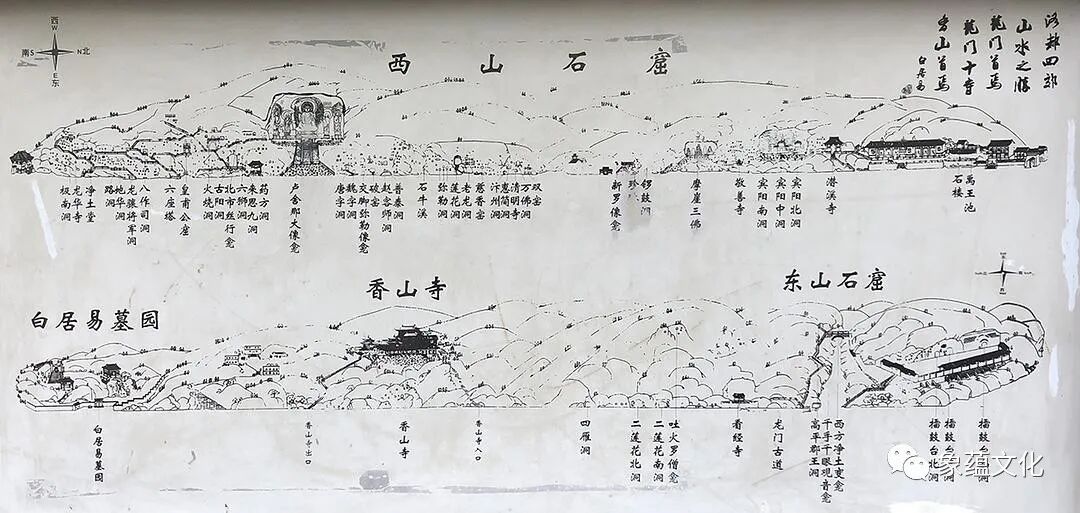 西
W
南S
N北
E
东
西山石窟
洛都四郊
山水之胜
龍门首焉
龍门十寺
香山首焉
白居易
极南洞
龙华寺
净土堂
路洞
地华洞
龙骧将军洞
八作司洞
六座塔
皇甫公窟
火烧洞
古阳洞
北市丝行龛
六狮洞
来思九洞
药方洞
卢舍那大像龛
唐字洞
魏字洞
交脚弥勒像龛
破窑
赵客师洞
普泰洞
石牛溪
弥勒洞
莲花洞
老龙洞
慈香窑
汴州洞
惠简洞
清明寺
万佛洞
双窑
新罗像龛
珍珠
锣鼓洞
摩崖三佛
敬善寺
宾阳南洞
宾阳中洞
宾阳北洞
潜溪寺
石楼
禹王池
白居易墓园
香山寺
东山石窟
白居易墓园
香山寺出口
香山寺
香山寺入口
四雁洞
二莲花北洞
二莲花南洞
吐火罗僧龛
看经寺
龙门古道
高平郡王洞
千手千眼观音龛
西方净土变龛
擂鼓台北洞
擂鼓台
擂鼓台
洞
象蕴文化